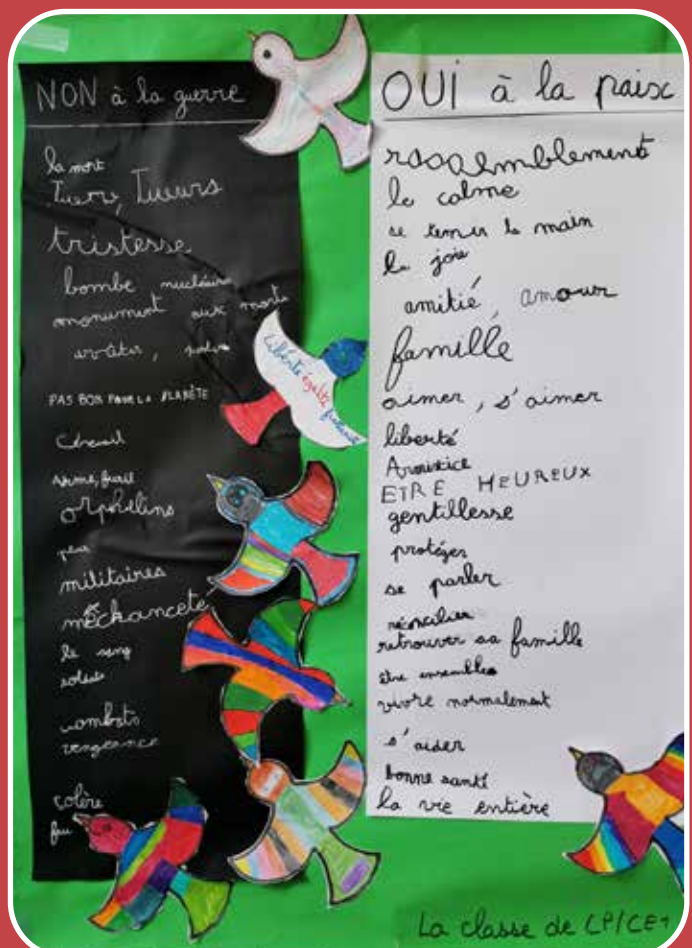 NON à la guerre
la mort
Tuer, Tueurs
tristesse
bombe nucléaire
monument aux morts
PAS BON POUR LA PLANÈTE
Cercueil
orphelins
peur
militaires
méchanceté
le sang
soldats
combats
vengeance
colère
feu
Liberté égalité fraternité
OUI à la paix
rassemblement
le calme
se tenir la main
la joie
amitié, amour
famille
aimer, s'aimer
liberté
Armistice
ETRE HEUREUX
gentillesse
protéger
se parler
réconcilier
retrouver sa famille
être ensembles
vivre normalement
s'aider
bonne santé
la vie entière
La classe de CP/CE1